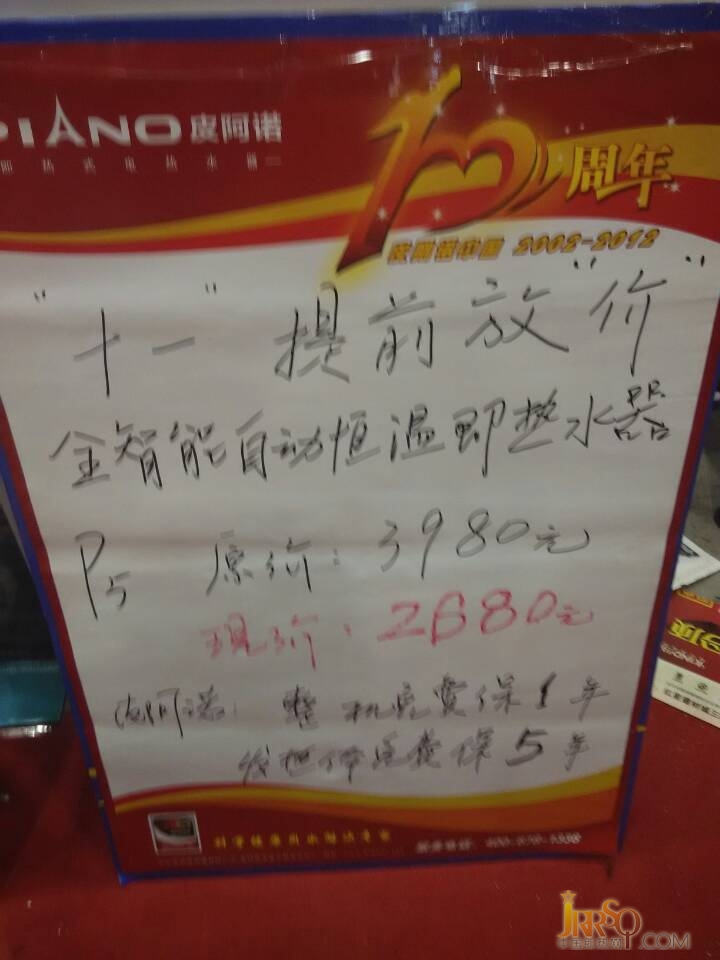 PIANO皮阿诺
即热式电热水器
10周年
皮阿诺中国 2002-2012
"十一"提前放"价"
全智能自动恒温即热水器
P5 原价:3980元
现价:2680元
皮阿诺:整机免费保1年
发热体免费保5年
JRRSQ.COM